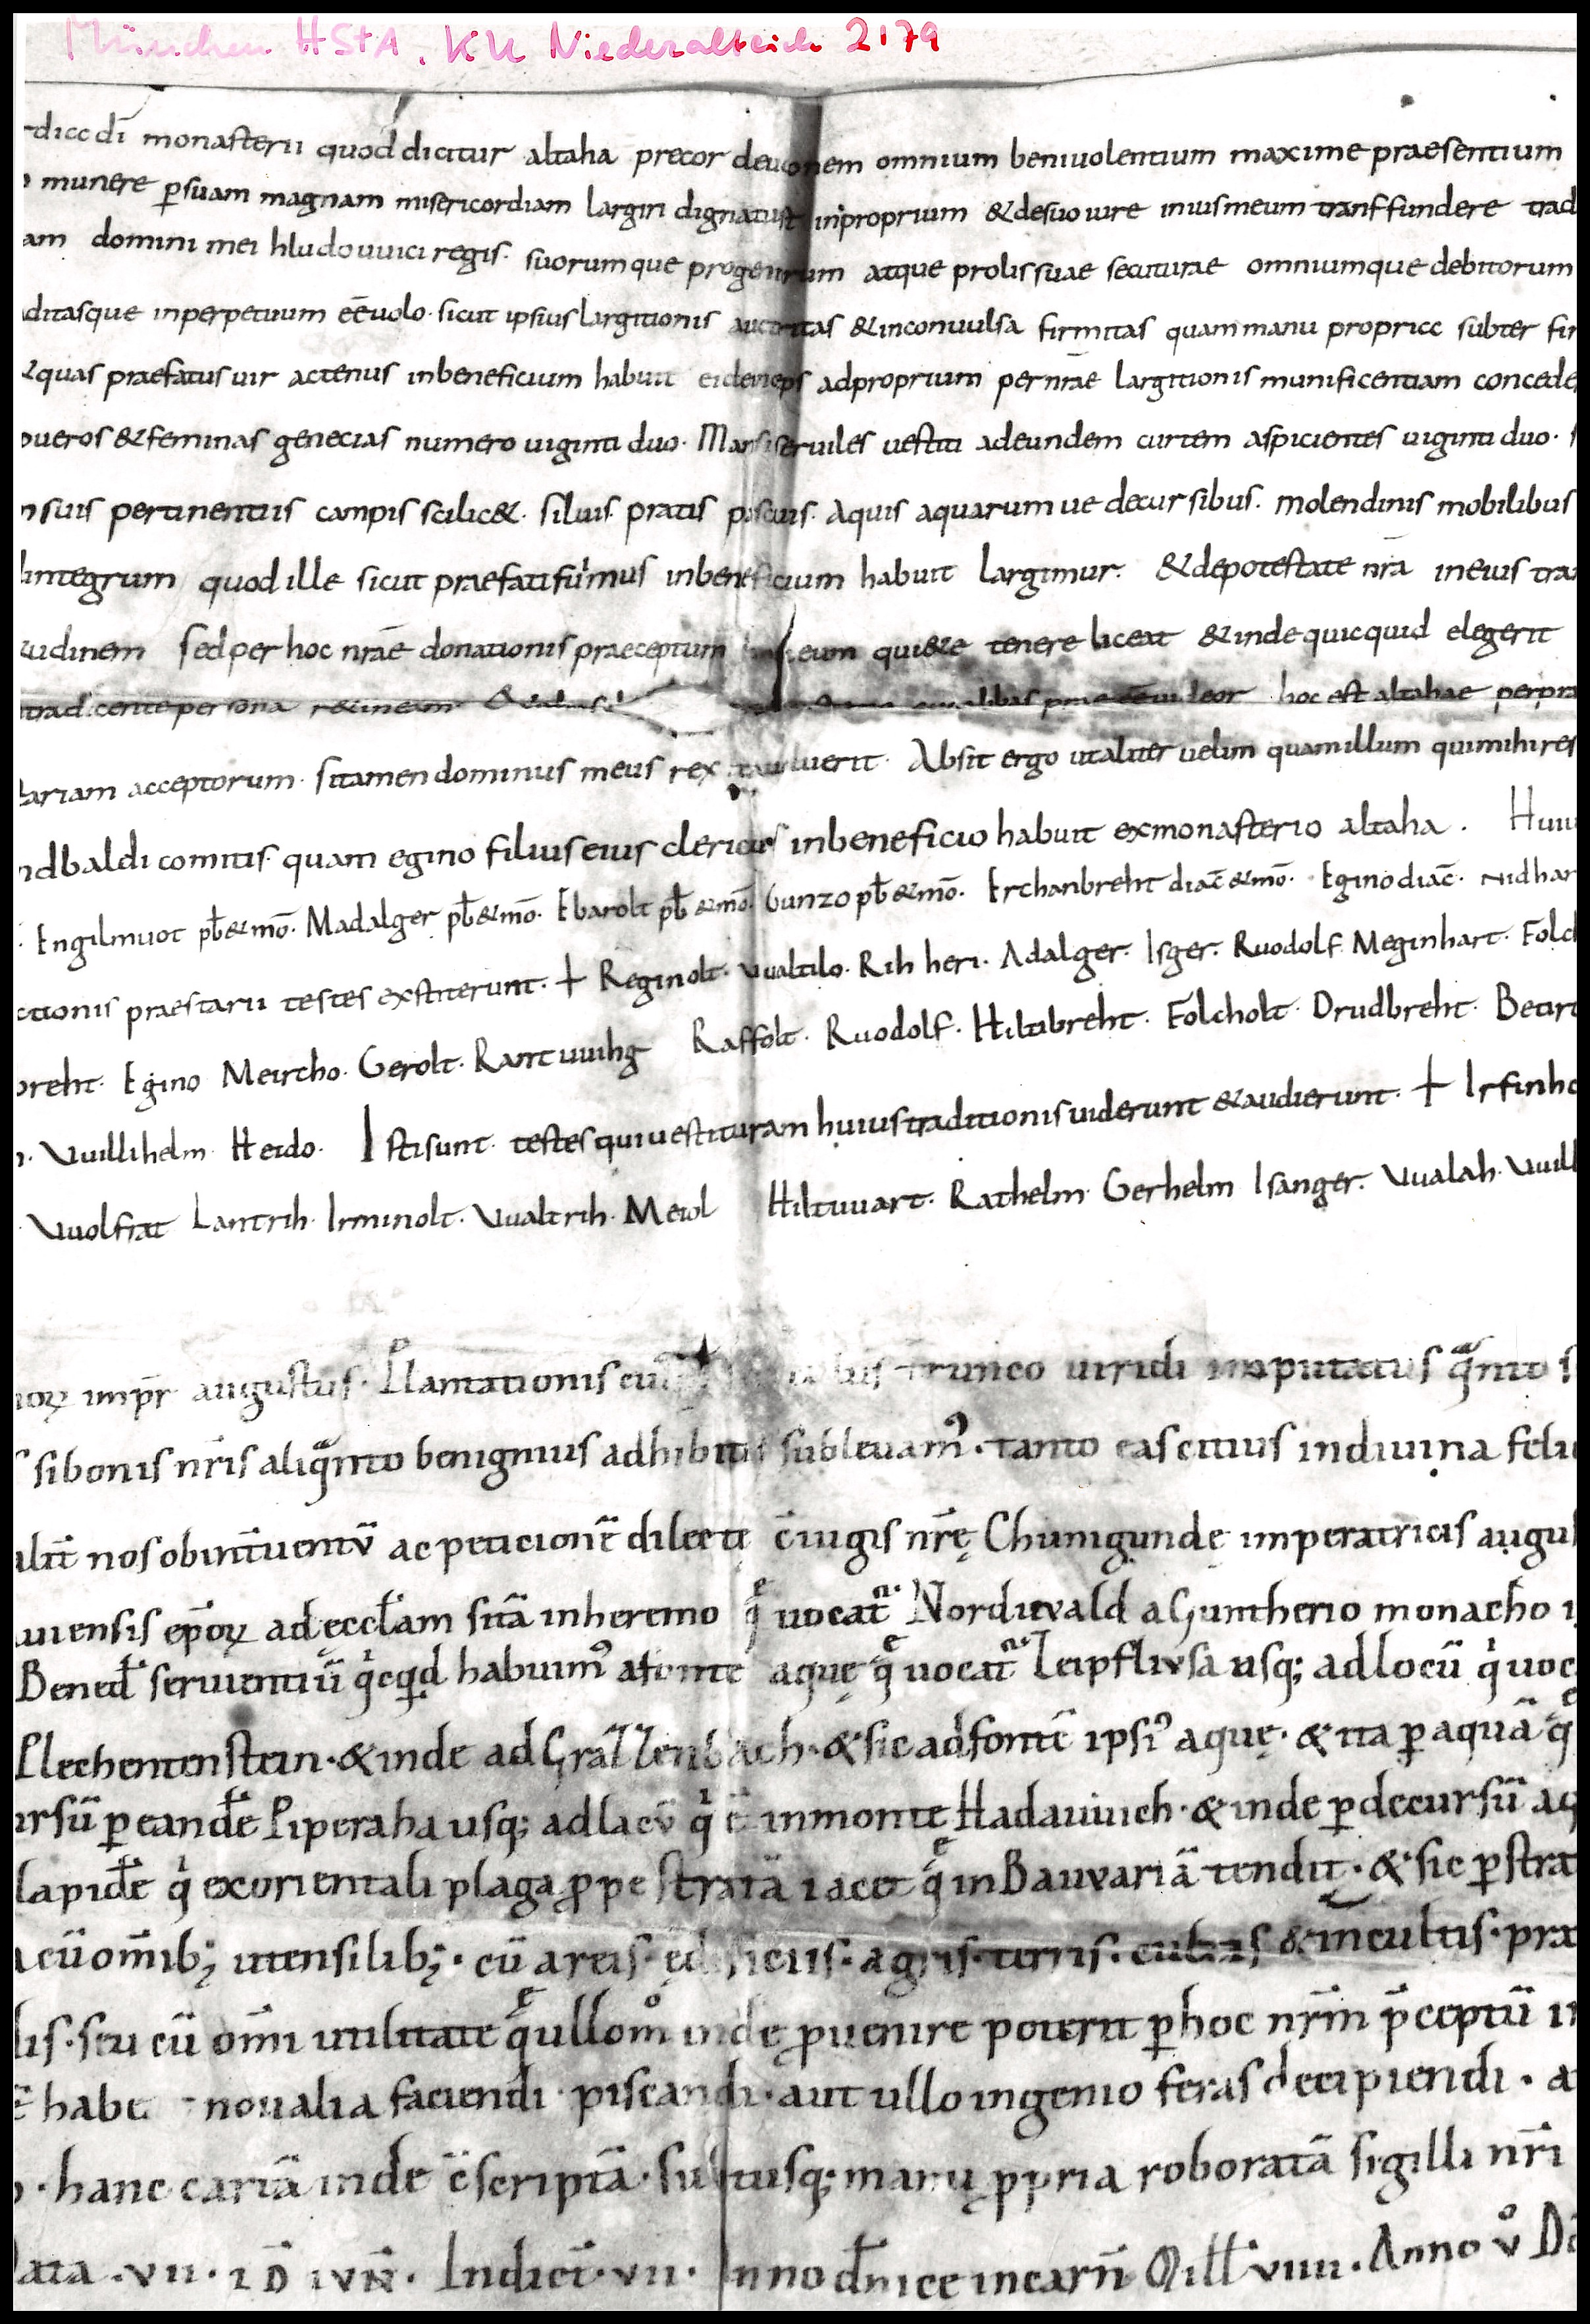 München HStA, KU Niederalteich 2179
dicc dī monasterii quod dicitur altaha precor deuo nem omnium beniuolentium maxime praesentium
munere ꝑsuam magnam misericordiam largiri dignatust inproprium &desuo iure inius meum transfundere trad
am domini mei hludouuici regis. suorumque progenitorum atque prolis suae secuturae omniumque debitorum
ditasque inperpetuum eē uolo· sicut ipsius largitionis auctoritas &inconuulsa firmitas quam manu propricc subter fir
&quas praefatus uir actenus inbeneficium habuit ei deinceps adproprium per nrāe largitionis munificentiam concede
pueros &feminas genecias numero uiginti duo· Mansi seruiles uestiti adeundem curtem aspicientes uiginti duo·
nsuis pertinentiis campis scilic&. siluis pratis pascuis. Aquis aquarum ue decursibus. molendinis mobilibus
integrum quod ille sicut praefati fuimus inbeneficium habuit largimur. &depotestate nrā ineius tra
tudinem sed per hoc nrāe donationis praeceptum eum qui&e tenere liceat &inde quicquid elegerit
persona hoc est altahae
tariam acceptorum· si tamen dominus meus rex uoluerit· Absit ergo ut aliter uelim quam illum qui mihi res
ndbaldi comitis· quam egino filius eius clericus inbeneficio habuit exmonasterio altaha . Huiu
Engilmuot pb̄&mō. Madalger pb̄&mō. Ebarolt pb̄ &mō. Gunzo pb̄&mō. Erchanbreht diac̄&mō. Egino diac̄. nidhar
ctionis praestarii testes exstiterunt. + Reginolt. Uualtilo. Rihheri. Adalger. Isger. Ruodolf. Meginhart. Folch
breht. Egino Meircho. Gerolt. Rantuuihg Raffolt. Ruodolf. Hiltibreht. Folcholt. Drudbreht. Betirt
Uuillihelm Heido. Isti sunt testes qui uestituram huius traditionis uiderunt &audierunt. + Irfinho
Uuolfrat Lantrih. Irminolt. Uualtrih. Meiol Hiltuuart. Rathelm. Gerhelm Isanger. Uualah. Uuill
norꝝ impr̄ augustus. Plantationis trunco uiridi inputatus qͣnto s
si bonis nr̄is aliqͣnto benignius adhibitis subleuamꝰ. tanto eas citius indiuina feli
nos obint̄uentū ac peticionē dilecte c̄iugis nr̄ę Chunigundę imperatricis augus
uuiensis ep̄orꝝ ad ęccl̄am sitā inheremo qͤ uocat̄ Norduuald a Guntherio monacho
Bened̄ seruientiū qͥcqͥd habuimꝰ afonte aquę qͤ uocat̄ Leipflusa usq; ad locū qͥ uoc
Plechentenstein· &inde ad Grazzenbach· &sic adfontē ipsiꝰ aquę· &ita ꝑ aquā qͤ
ursū ꝑ eandē Piperaha usq; ad lacū qͥ ē inmonte Hadauuich· &inde ꝑ decursū aq
lapidē qͥ exorientali plaga ꝓpe stratā iacet qͤ in Bauuariā tendit· &sic ꝑ stra
cū om̄ib; utensilib;· cū areis· ędificiis· agris· terris· cultis &incultis· pra
lis· seu cū om̄i utilitate qͤ ullomͦ indę ꝓuenire poterit ꝑ hoc nr̄m p̄ceptū
noualia faciendi· piscandi· aut ullo ingenio feras decipiendi·
hanc cartā inde c̄scriptā· subtusq; manu ꝓpria roboratā sigilli nr̄i
ata ·VII· ID IVN̄· Indict̄· VII· Anno dn̄ice incarn̄ Mill̄ VIIII· Anno v̊